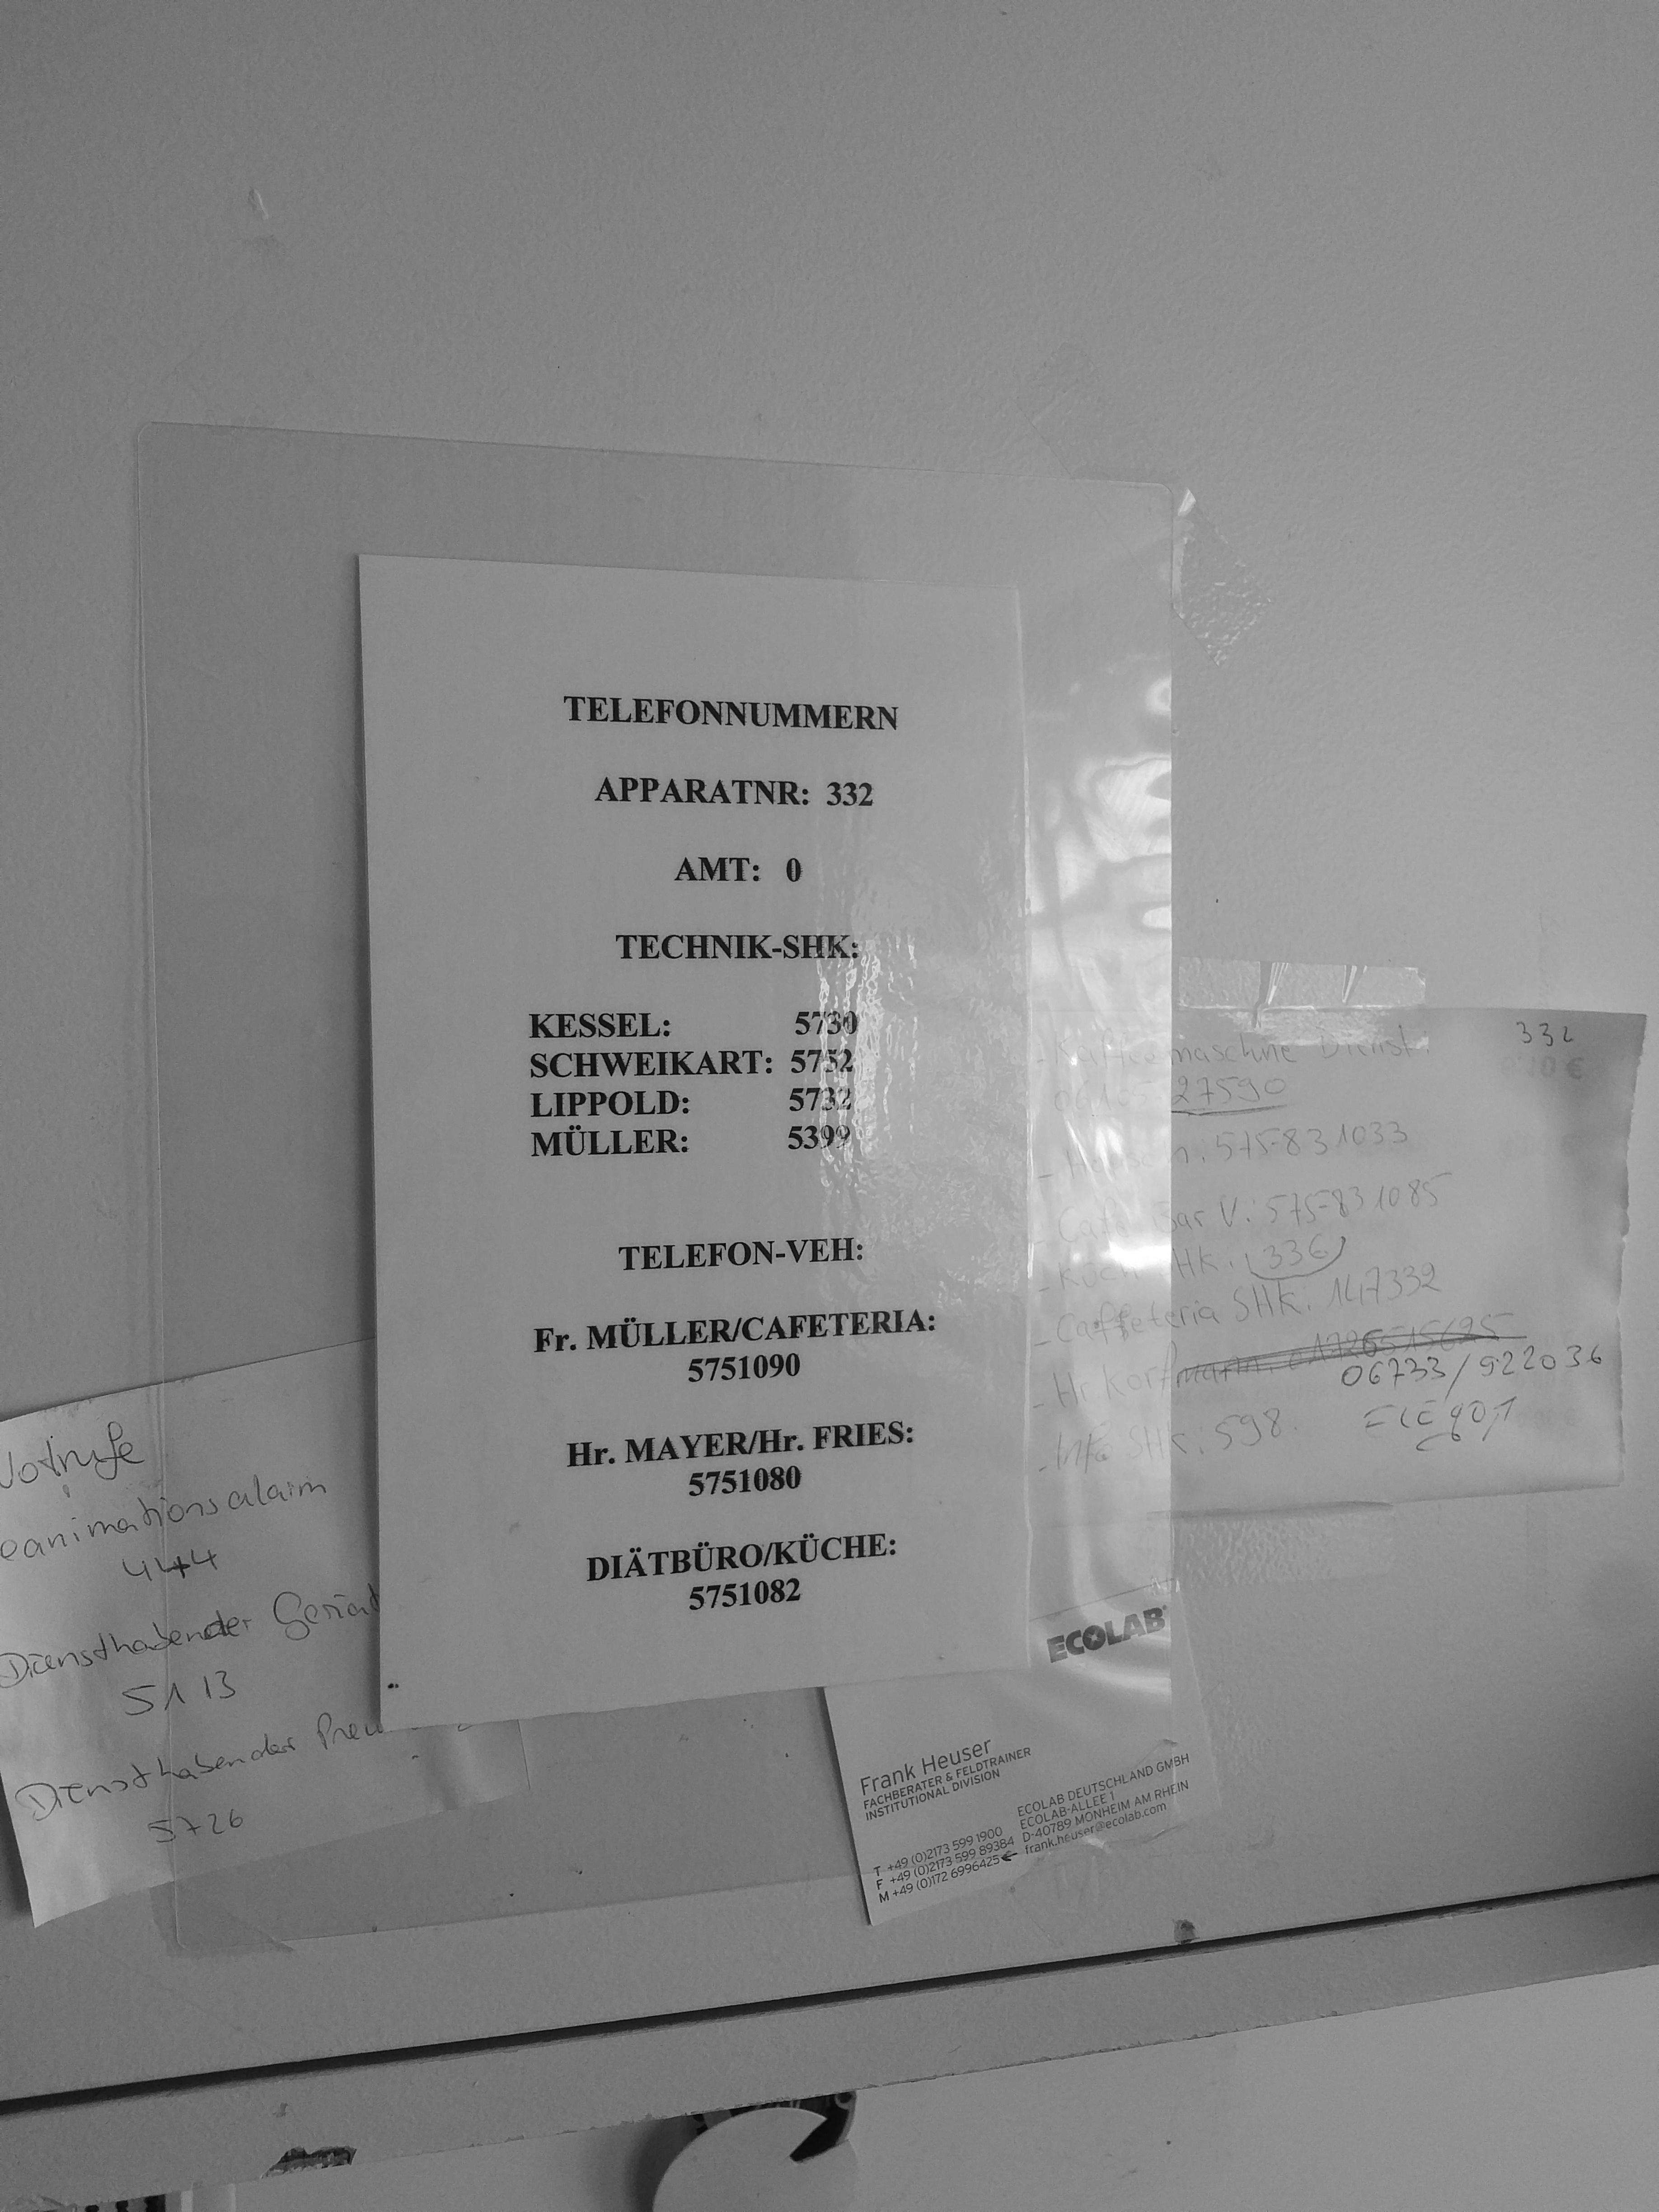 TELEFONNUMMERN
APPARATNR: 332
AMT: 0
TECHNIK-SHK:
KESSEL: 5730
SCHWEIKART: 5752
LIPPOLD: 5732
MÜLLER: 5399
TELEFON-VEH:
Fr. MÜLLER/CAFETERIA:
5751090
Hr. MAYER/Hr. FRIES:
5751080
DIÄTBÜRO/KÜCHE:
5751082
Notrufe
eanimationsalarm
444
Diensthabender Geriat
5113
Diensthabender Pneu
5726
332
- Kaffeemaschine Dienst:
27590
: 575-831033
Bar V.: 575-831085
HK. 336
- Caffeteria SHK. 147332
- Hr Korf
06733/922036
- Info SHK: 598.
ECOLAB
Frank Heuser
FACHBERATER & FELDTRAINER
INSTITUTIONAL DIVISION
T +49 (0)2173 599 1900
F +49 (0)2173 599 89384
M +49 (0)172 6996425
ECOLAB DEUTSCHLAND GMBH
ECOLAB-ALLEE 1
D-40789 MONHEIM AM RHEIN
frank.heuser@ecolab.com